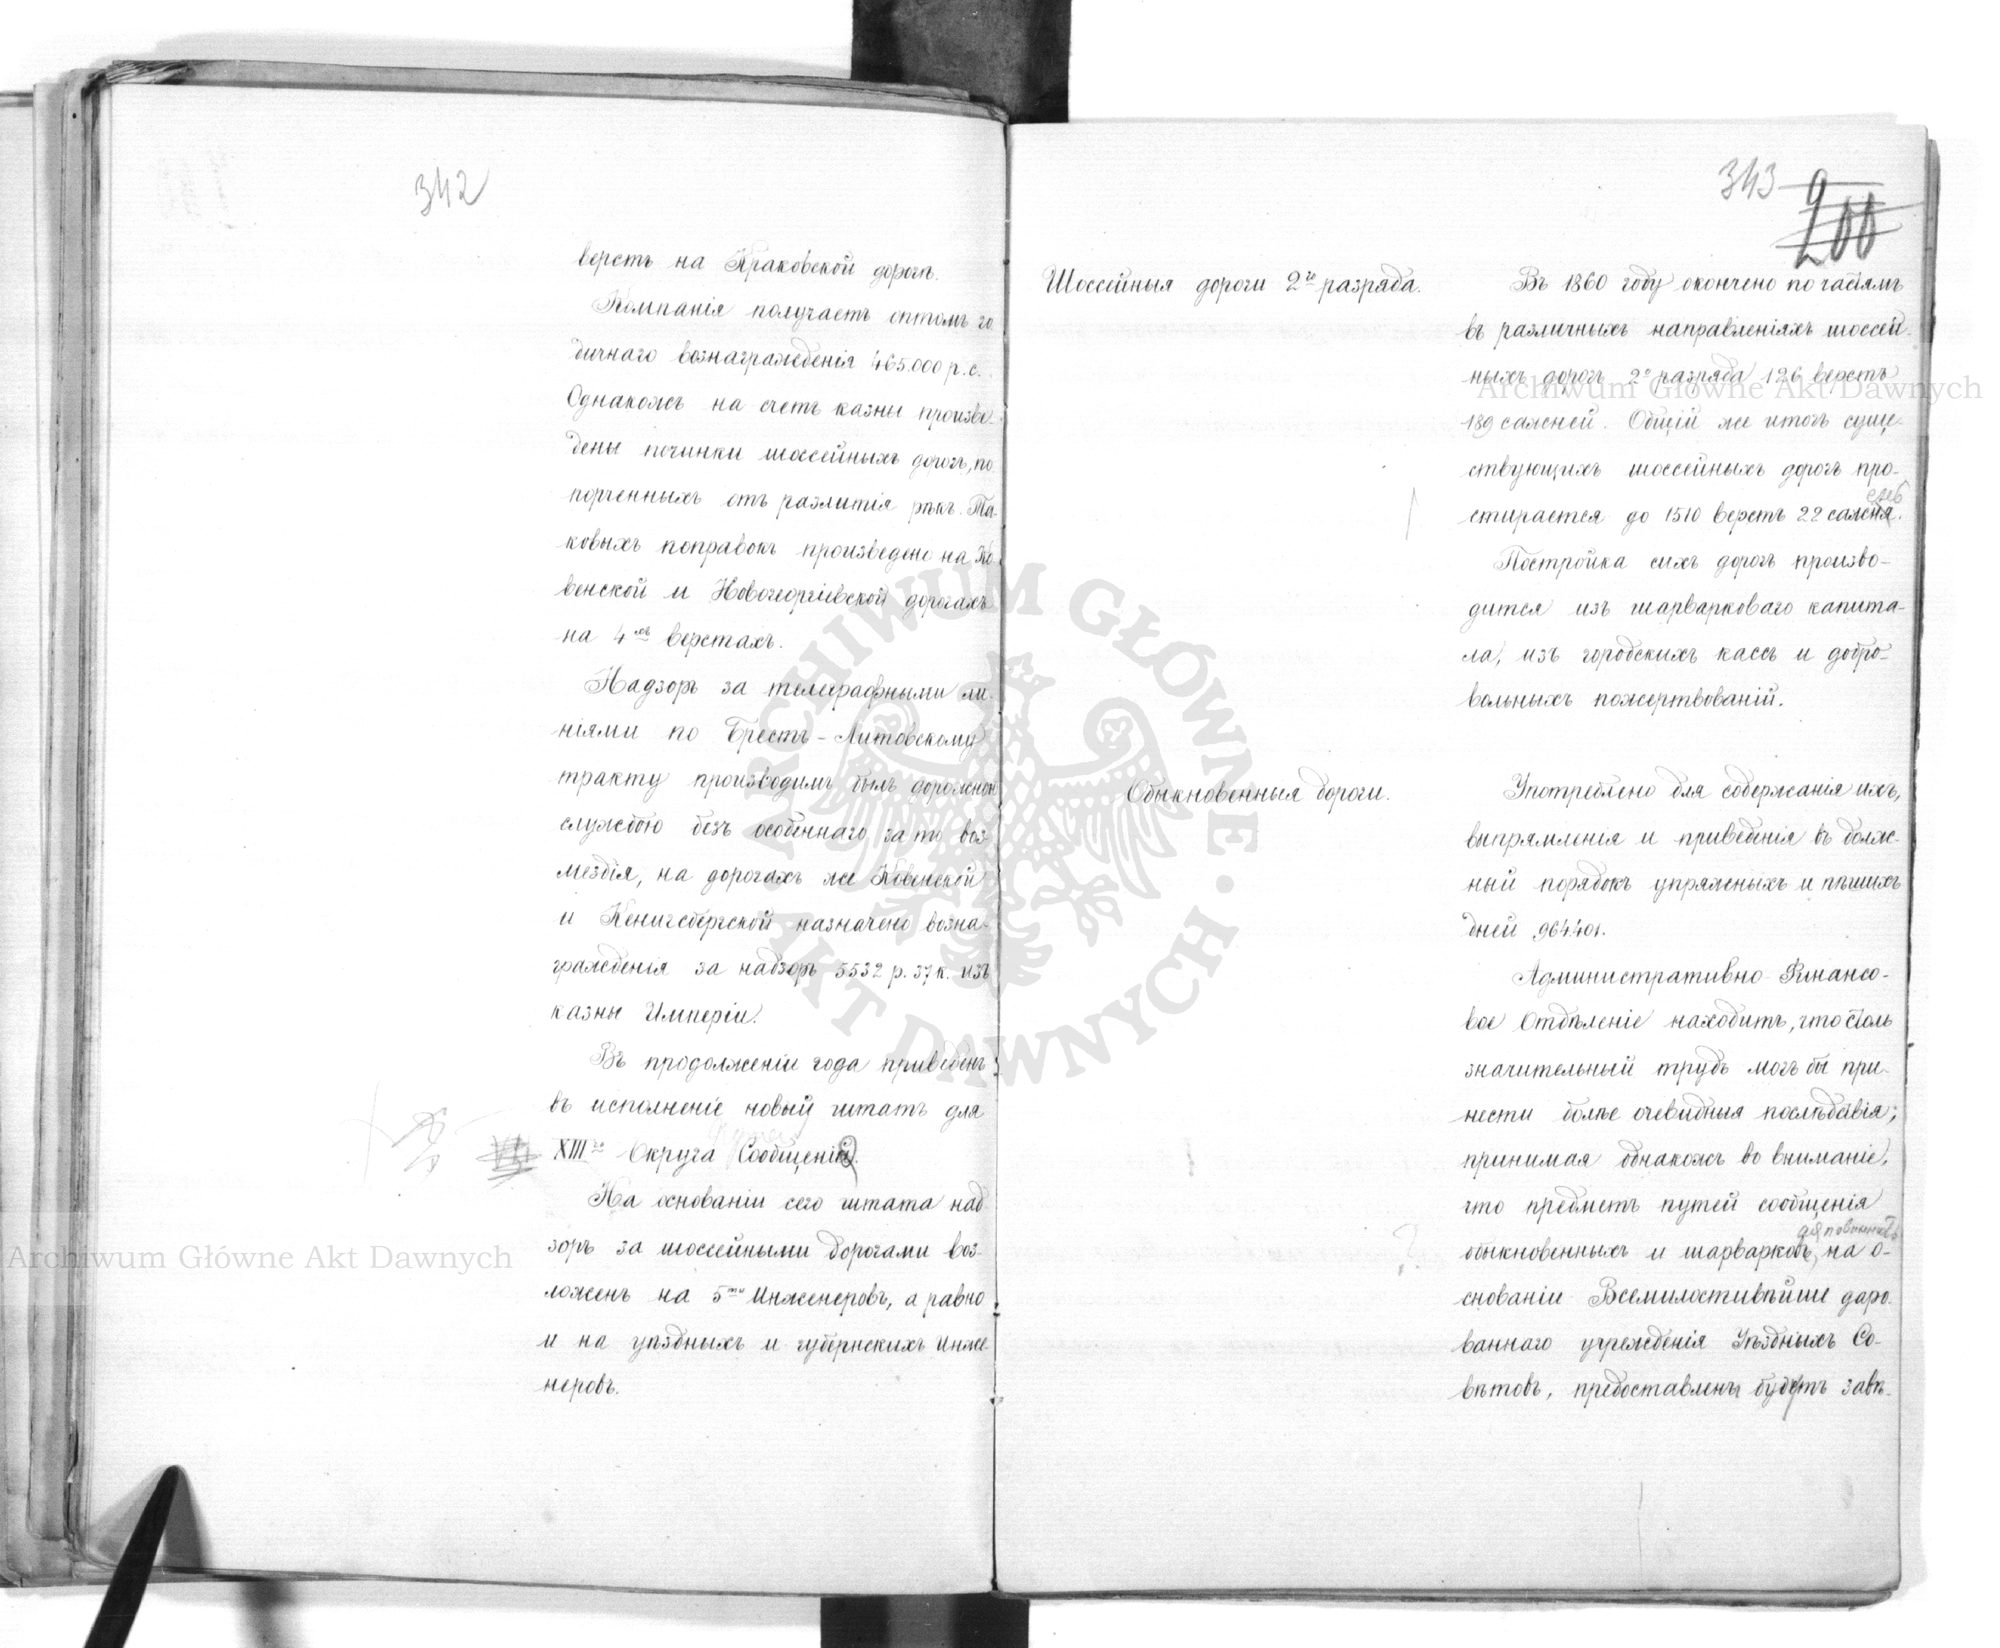 342
верстъ на Краковской дорогѣ.
Компанія получаетъ оптомъ го
дичнаго вознагражденія 465.000 р. с.
Однакожъ на счетъ казны произве-
дены починки шоссейныхъ дорогъ, по
порченныхъ отъ разлитія рѣкъ. Та-
ковыхъ поправокъ произведено на Ко-
венской и Новогеоргіевской дорогахъ
на 4хъ верстахъ.
Надзоръ за телеграфными ли-
ніями по Брестъ-Литовскому
тракту производимъ былъ дорожною
службою безъ особеннаго за то воз-
мездія, на дорогахъ же Ковенской
и Кенигсбергской назначено возна-
гражденія за надзоръ 5532 р. 37 к. изъ
казны Имперіи.
Въ продолженіи года приведенъ
въ исполненіе новый штатъ для
XIIIго Округа Сообщеній.
На основаніи сего штата над-
зоръ за шоссейными дорогами воз-
ложенъ на 5ти Инженеровъ, а равно
и на уѣздныхъ и губернскихъ Инже-
неровъ.
343
200
Шоссейныя дороги 2го разряда.
Въ 1860 году окончено по частямъ
въ различныхъ направленіяхъ шоссей-
ныхъ дорогъ 2о разряда 126 верстъ
189 саженей. Общій же итогъ суще-
ствующихъ шоссейныхъ дорогъ про-
стирается до 1510 верстъ 22 саженя.
Постройка сихъ дорогъ произво-
дится изъ шарварковаго капита-
ла, изъ городскихъ кассъ и добро-
вольныхъ пожертвованій.
Обыкновенныя дороги.
Употреблено для содержанія ихъ,
выпрямленія и приведенія въ долж-
ный порядокъ упряжныхъ и пѣшихъ
дней 964.401.
Административно-Финансо-
вое Отдѣленіе находитъ, что столь
значительный трудъ могъ бы при-
нести болѣе очевидныя послѣдствія;
принимая однакожъ во вниманіе,
что предметъ путей сообщенія
обыкновенныхъ и шарварковъ, на о-
снованіи Всемилостивѣйше даро-
ваннаго учрежденія Уѣздныхъ Со-
вѣтовъ, предоставленъ будетъ завѣ-
Archiwum Główne Akt Dawnych
Archiwum Główne Akt Dawnych
ARCHIWUM GŁÓWNE AKT DAWNYCH